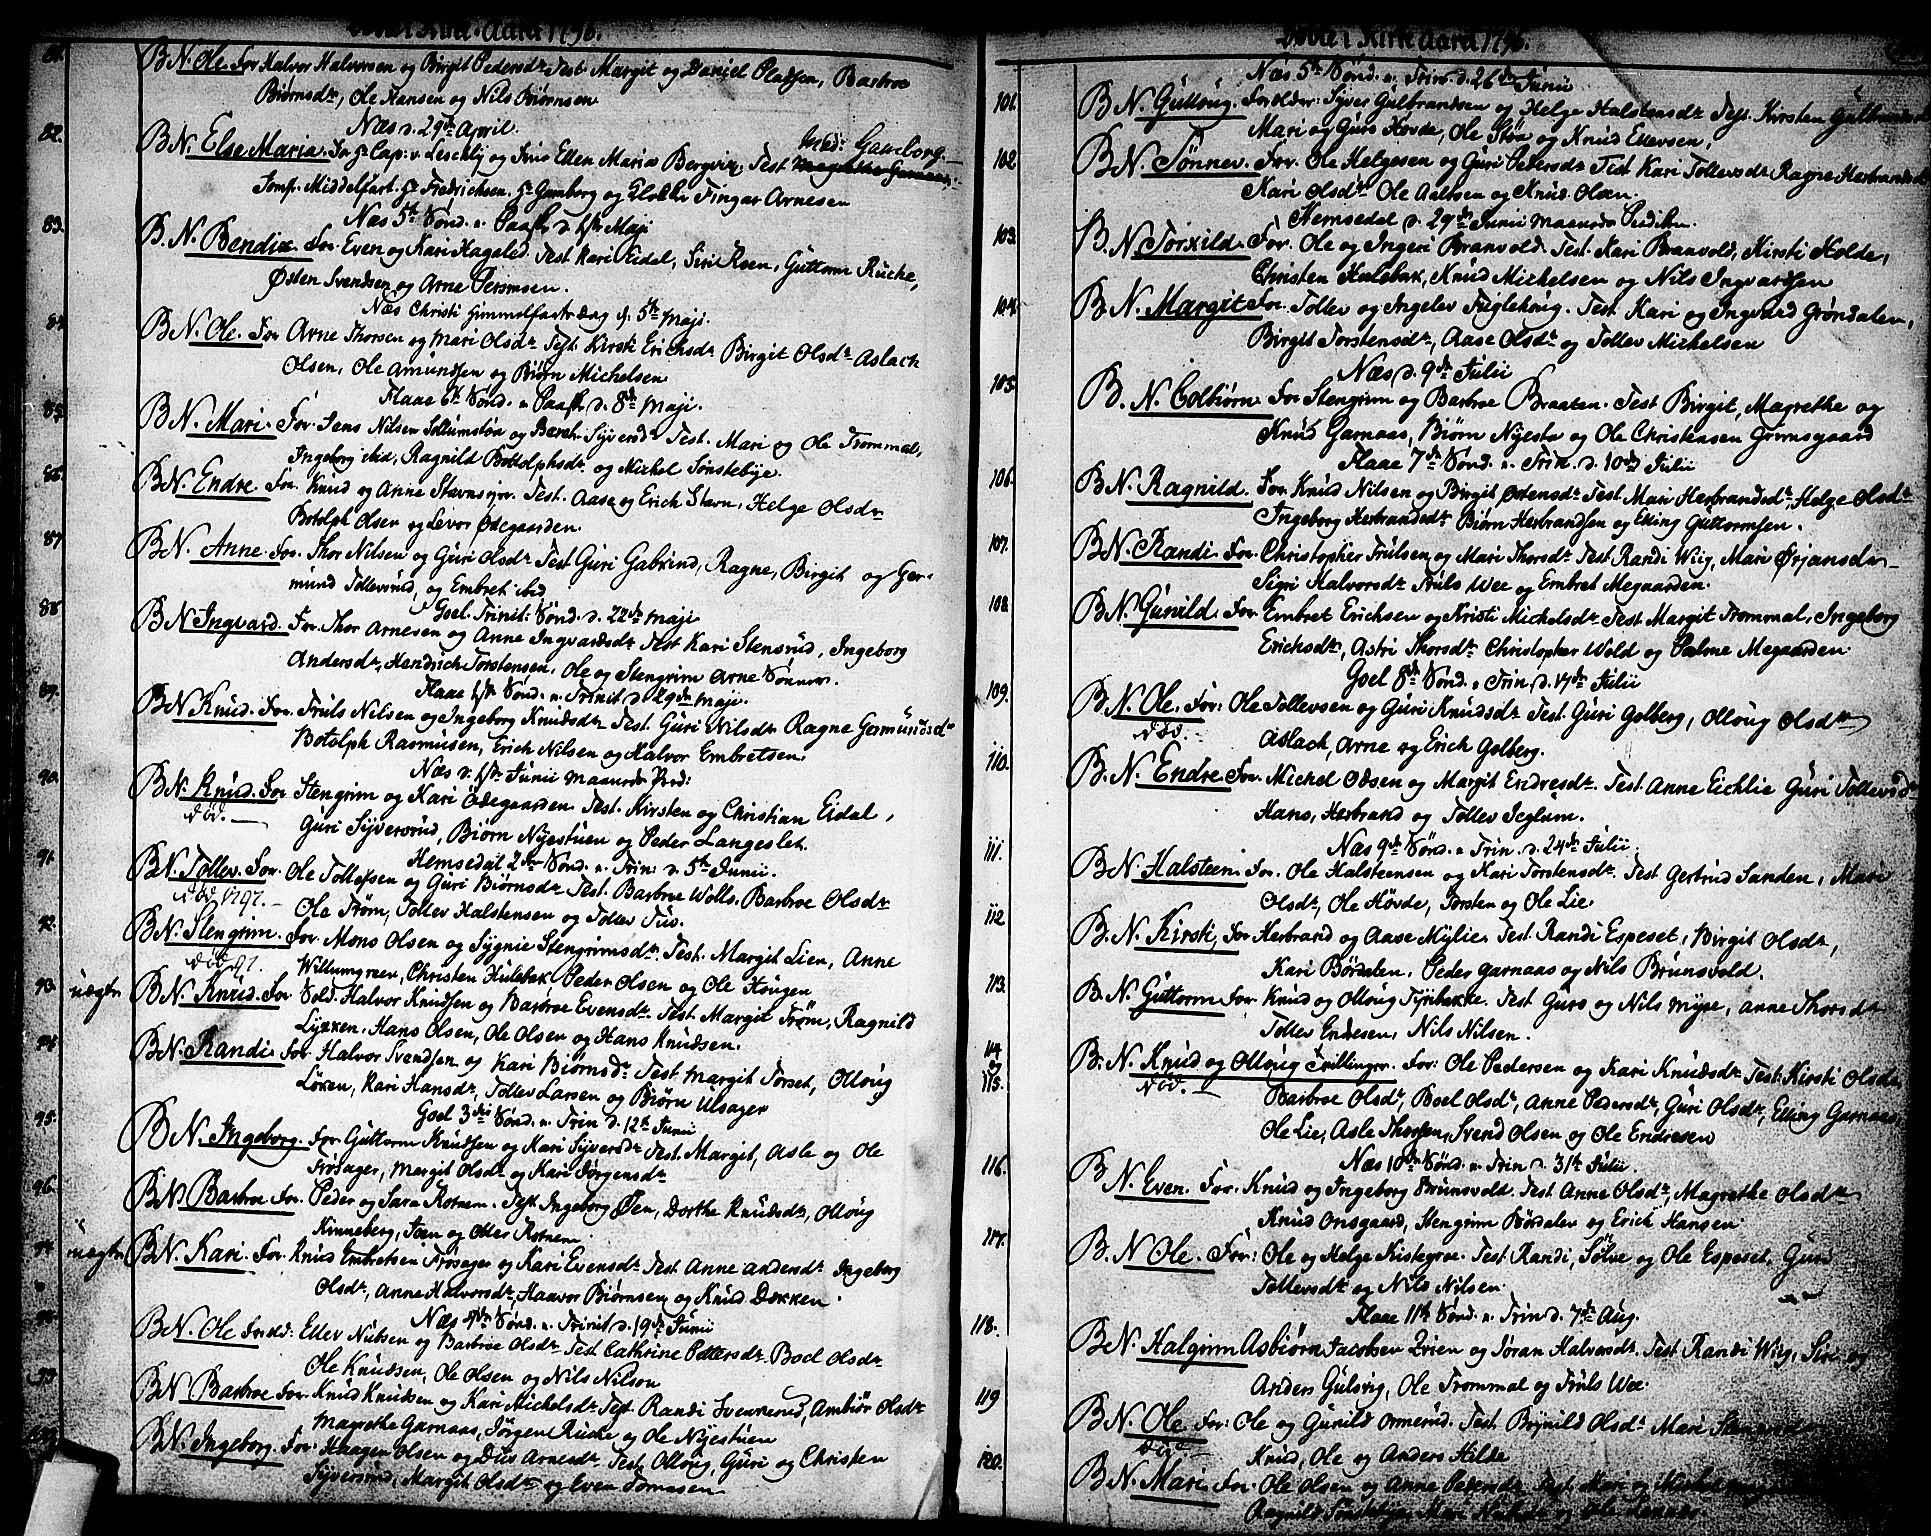 Døbte i Kirke Aaret 1796.
81. BN. Ole. For Halvor Halvorsen og Birgit Pedersdr. Test. Margit og Daniel Pladsen, Barbroe
Biørnsdr, Ole Hansen og Nils Biørnsen
Næs d. 29de April.
82. BN. Else Maria. For Hr Cap: v. Leschly og Frue Ellen Maria Bergwitz, Test. Mad: Gamborg.
Jomf. Middelfart. Hr Fredrichsen, Hr Gamborg og Klokker Fingar Arnesen
Næs 5te Sønd. n. Paaske d. 1ste Maji
83. B. N. Bendix For. Even og Kari Hagaled. Test. Kari Eidal, Siri Roen, Guttorm Ruche,
Østen Svendsen og Arne Persmoen.
Næs Christi Himmelfartsdag d. 5te Maji.
84. BN. Ole. For Arne Thorsen og Mari Olsdr Test. Kirsti Erichsdr Birgit Olsdr Aslach
Olsen, Ole Amundsen og Biørn Michelsen
Flaae 6te Sønd. n. Paaske d. 8de Maji.
85. BN. Mari. For. Jens Nilsen og Sÿversdr Test. Mari og Ole Trommal,
Ingeborg ibid, Ragnild Bottolphsdr og Michel Sønstebÿe.
86. BN. Endre. For. Knud og Anne Stavns Test. Aase og Erich Stavn, Helge Olsdr
Botolph Olsen og Levor Ødegaarden.
87. BN. Anne. For. Thor Nilsen og Guri Olsdr Test Guri Gabrind, Ragne, Birgit og Ger-
mund Tollevsrud, og Embret ibid
Goel. Trinit: Sønd. d. 22de Maji
88. BN Ingvard. For. Thor Arnesen og Anne Ingvardsdr Test Kari Stensrud, Ingeborg
Andersdr, Hendrich Torstensen, Ole og Stengrim Arne Sønner.
Flaae 1ste Sønd. n. Trinit d. 29de Maji
89. BN Knud. For. Truls Nilsen og Ingeborg Knudsdr Test. Guri Nilsdr Ragne Germundsdr
Botolph Rasmusen, Erich Nilsen og Halvor Embretsen
Næs d. 1ste Junii Maaneds Præd:
90. BN. Knud. For Stengrim og Kari Ødegaarden Test. Kirsten og Christian Eidal,
død. Guri Sÿversrud, Biørn Nÿestuen og Peder Langeslet.
Hemsedal 2den Sønd. n. Trin: d. 5te Junii.
91. BN. Tollev. For. Ole Tollefsen og Guri Biørnsdr Test. Barbroe Wolls, Barbroe Olsdr
død 1797. Ole Trøm, Tollev Halstensen og Tollev Tuv.
92. BN. Stengrim. For. Mons Olsen og Sÿgnie Stengrimsdr Test. Margit Lien, Anne
død 97. Willumgreen, Christen Hulebak Peder Olsen og Ole Hougen
93. uægte BN. Knud. For Sold. Halvor Knudsen og Barbroe Evensdr Test Margit Trøm, Ragnild
Lÿkken, Hans Olsen, Ole Olsen og Hans Knudsen.
94. BN. Randi. For Halvor Svendsen og Kari Biørnsdr Test Margit Torset, Olloug
Løken, Kari Hansdr, Tollev Larsen og Biørn Ulsager
Goel 3die Sønd. n. Trin d. 12te Junii
95. BN. Ingeborg. For Guttorm Knudsen og Kari Sÿversdr Test. Margit, Asle og Ole
Frøsager, Margit Olsdr og Kari Jørgensdr
96. BN. Barbroe For. Peder og Sara Rotnem. Test Ingeborg Øen, Dorthe Knudsdr, Olloug
Kinneberg, Joen og Otter Rotnem.
97. uægte BN. Kari. For. Knud Embretsen Frøsager og Kari Evensdr Test Anne Andersdr Ingeborg
Olsdr, Anne Halvorsdr, Haavor Biørnsen og Knud Dokken.
Næs 4de Sønd. n. Trinit d. 19de Junii
98. BN. Ole Foræld: Ellev Nubsen og Barbroe Olsdr Test Cathrine Pettersdr Boel Olsdr
Ole Knudsen, Ole Olsen og Nils Nilson
99. BN Barbroe For. Knud Knudsen og Kari Michelsdr Test. Randi Svennerud, Ambiør Olsdr
Magrethe Garnaas, Jørgen Ruche og Ole Nÿestuen
100. BN. Ingeborg. For. Haagen Olsen og Duv Arnesdr Test Olloug, Guri og Christen
Sÿversrud, Margit Olsdr og Even Tomasen.
Døbte i Kirke Aaret 1796.
Næs 5te Sønd. n. Trin. d. 26de Junii
101. BN. Guttoug. Forælder: Sÿver Gulbrandsen og Helge Halstensdr Test. Kirsten Gulbrandsdr
Mari og Guro Hovde, Ole Støa og Knud Ellevsen,
102. BN. Tønnev. For. Ole Helgesen og Guri Pedersdr Test Kari Tollevsdr Ragne Herbrandsdr
Kari Olsdr Ole Aalesen og Knud Olsen.
Hemsedal d. 29de Junii Maaneds Prædiken.
103. BN Torkild. For. Ole og Ingeri Branvold. Test. Kari Branvold, Kirsti Holde,
Christen Hulebak, Knud Michelsen og Nils Ingvardsen
104. BN. Margit For. Tollev og Ingelev Fuglehoug. Test. Kari og Ingvard Grøndalen,
Birgit Torstensdr, Aase Olsdr og Tollev Michelsen
Næs d. 9de Julii
105. B. N. Colbiørn. For Stengrim og Barbroe Braaten. Test Birgit, Magrethe og
Knud Garnaas, Biørn Nÿestu og Ole Christensen Grimsgaard
Flaae 7de Sønd. n. Trin. d. 10de Julii
106. BN. Ragnild. For. Knud Nilsen og Birgit Østensdr Test Mari Herbrandsdr, Helge Olsdr
Ingeborg Herbrandsdr Biørn Herbrandsen og Elling Guttormsen.
107. BN. Randi. For. Christopher Trulsen og Mari Thorsdr Test Randi Wiig, Mari Ørjansdr
Sigri Halvorsdr Truls Wee og Embret Megaarden.
108. BN. Gunild. For. Embret Erichsen og Kristi Michelsdr Test Margit Trommal, Ingeborg
Erichsdr, Astri Thorsdr Christopher Wold og Palme Megaarden.
Goel 8de Sønd. n. Trin. d. 17de Julii
109. B. N. Ole. For: Ole Tollevsen og Guri Knudsdr Test. Guri Golberg, Olloug Olsdr
død. Aslach, Arne og Erich Golberg.
110. B. N. Endre For. Michel Odsen og Margit Endresdr. Test. Anne Eichlie Guri Tollevsdr
Hans, Herbrand og Tollev Jeglum.
Næs 9de Sønd. n. Trin. d. 24de Julii.
111. BN. Halsteen. For. Ole Halsteensen og Kari Torstensdr. Test Gertrud Sanden, Mari
Olsdr, Ole Hovde, Torsten og Ole Lie.
112. B. N. Kirsti, For Herbrand og Aase Mÿlie. Test. Randi Espeset, Birgit Olsdr,
Kari Børdalen, Peder Garnaas og Nils Brunsvold.
113. B. N. Guttorm For. Knud og Olloug Tÿribakke. Test Guro og Nils Mÿre, Anne Thorsdr
Tollev Endresen, Nils Nilsen.
114 og 115. B. N. Knud og Olloug Tvillinger. For: Ole Pedersen og Kari Knudsdr Test: Kirsti Olsdr
død. Barbroe Olsdr, Boel Olsdr, Anne Pedersdr, Guri Olsdr, Elling Garnaas,
Ole Lie, Asle Thorsen, Svend Olsen og Ole Endresen
Næs 10de Sønd n. Trin d. 31te Julii.
116. B. N. Even. For. Knud og Ingeborg Brunsvold. Test Anne Olsdr, Magrethe Olsdr
Knud Onsgaard, Stengrim Børdalen og Erich Hansen
117. B. N Ole. For: Ole og Helge Kistegroe. Test. Randi, Sølve og Ole Espeset, Guri
Tollevsdr og Nils Nilsen.
Flaae 11te Sønd. n. Trin d. 7de Aug.
118. BN. Halgrim Asbiørn Jacobsen Zrien og Jøran Halvorsdr. Test Randi Wiig, Siri og
Anders Gulsvig, Ole Trommal og Truls Wee
119 BN. Ole For: Ole og Gunild Ormerud. Test. Brÿnild Olsdr Mari
død Knud, Ole og Anders Hilde
120. BN. Mari. For. Ole Olsen og Anne Pedersdr Test. Mari og Michel
Ragnild